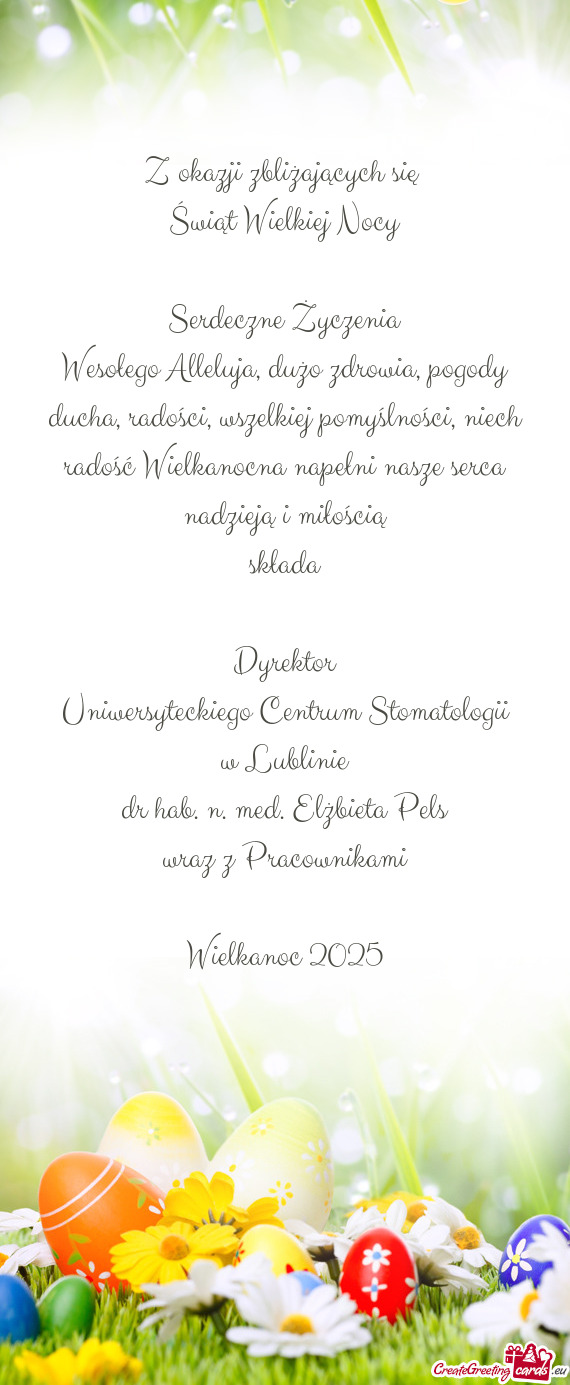 Z okazji zbliżających się
Świąt Wielkiej Nocy
Serdeczne Życzenia
Wesołego Alleluja, dużo zdrowia, pogody
ducha, radości, wszelkiej pomyślności, niech
radość Wielkanocna napełni nasze serca
nadzieją i miłością
składa
Dyrektor
Uniwersyteckiego Centrum Stomatologii
w Lublinie
dr hab. n. med. Elżbieta Pels
wraz z Pracownikami
Wielkanoc 2025
CreateGreetingcards.eu